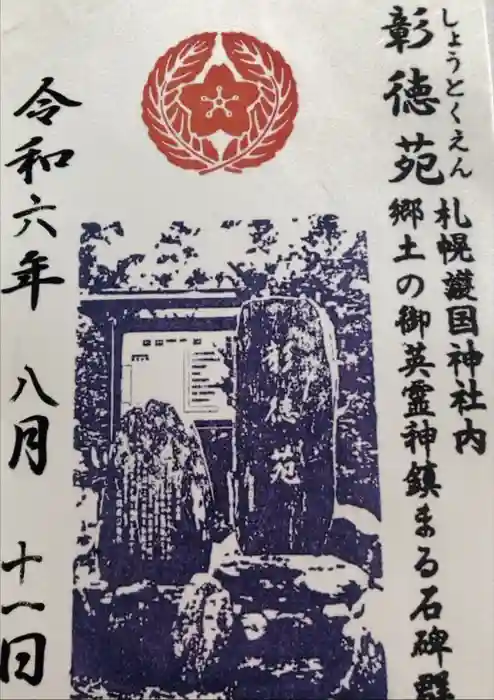 しょうとくえん
彰徳苑
札幌護国神社内
郷土の御英霊神鎮まる石碑群
彰徳苑
令和六年 八月 十一日